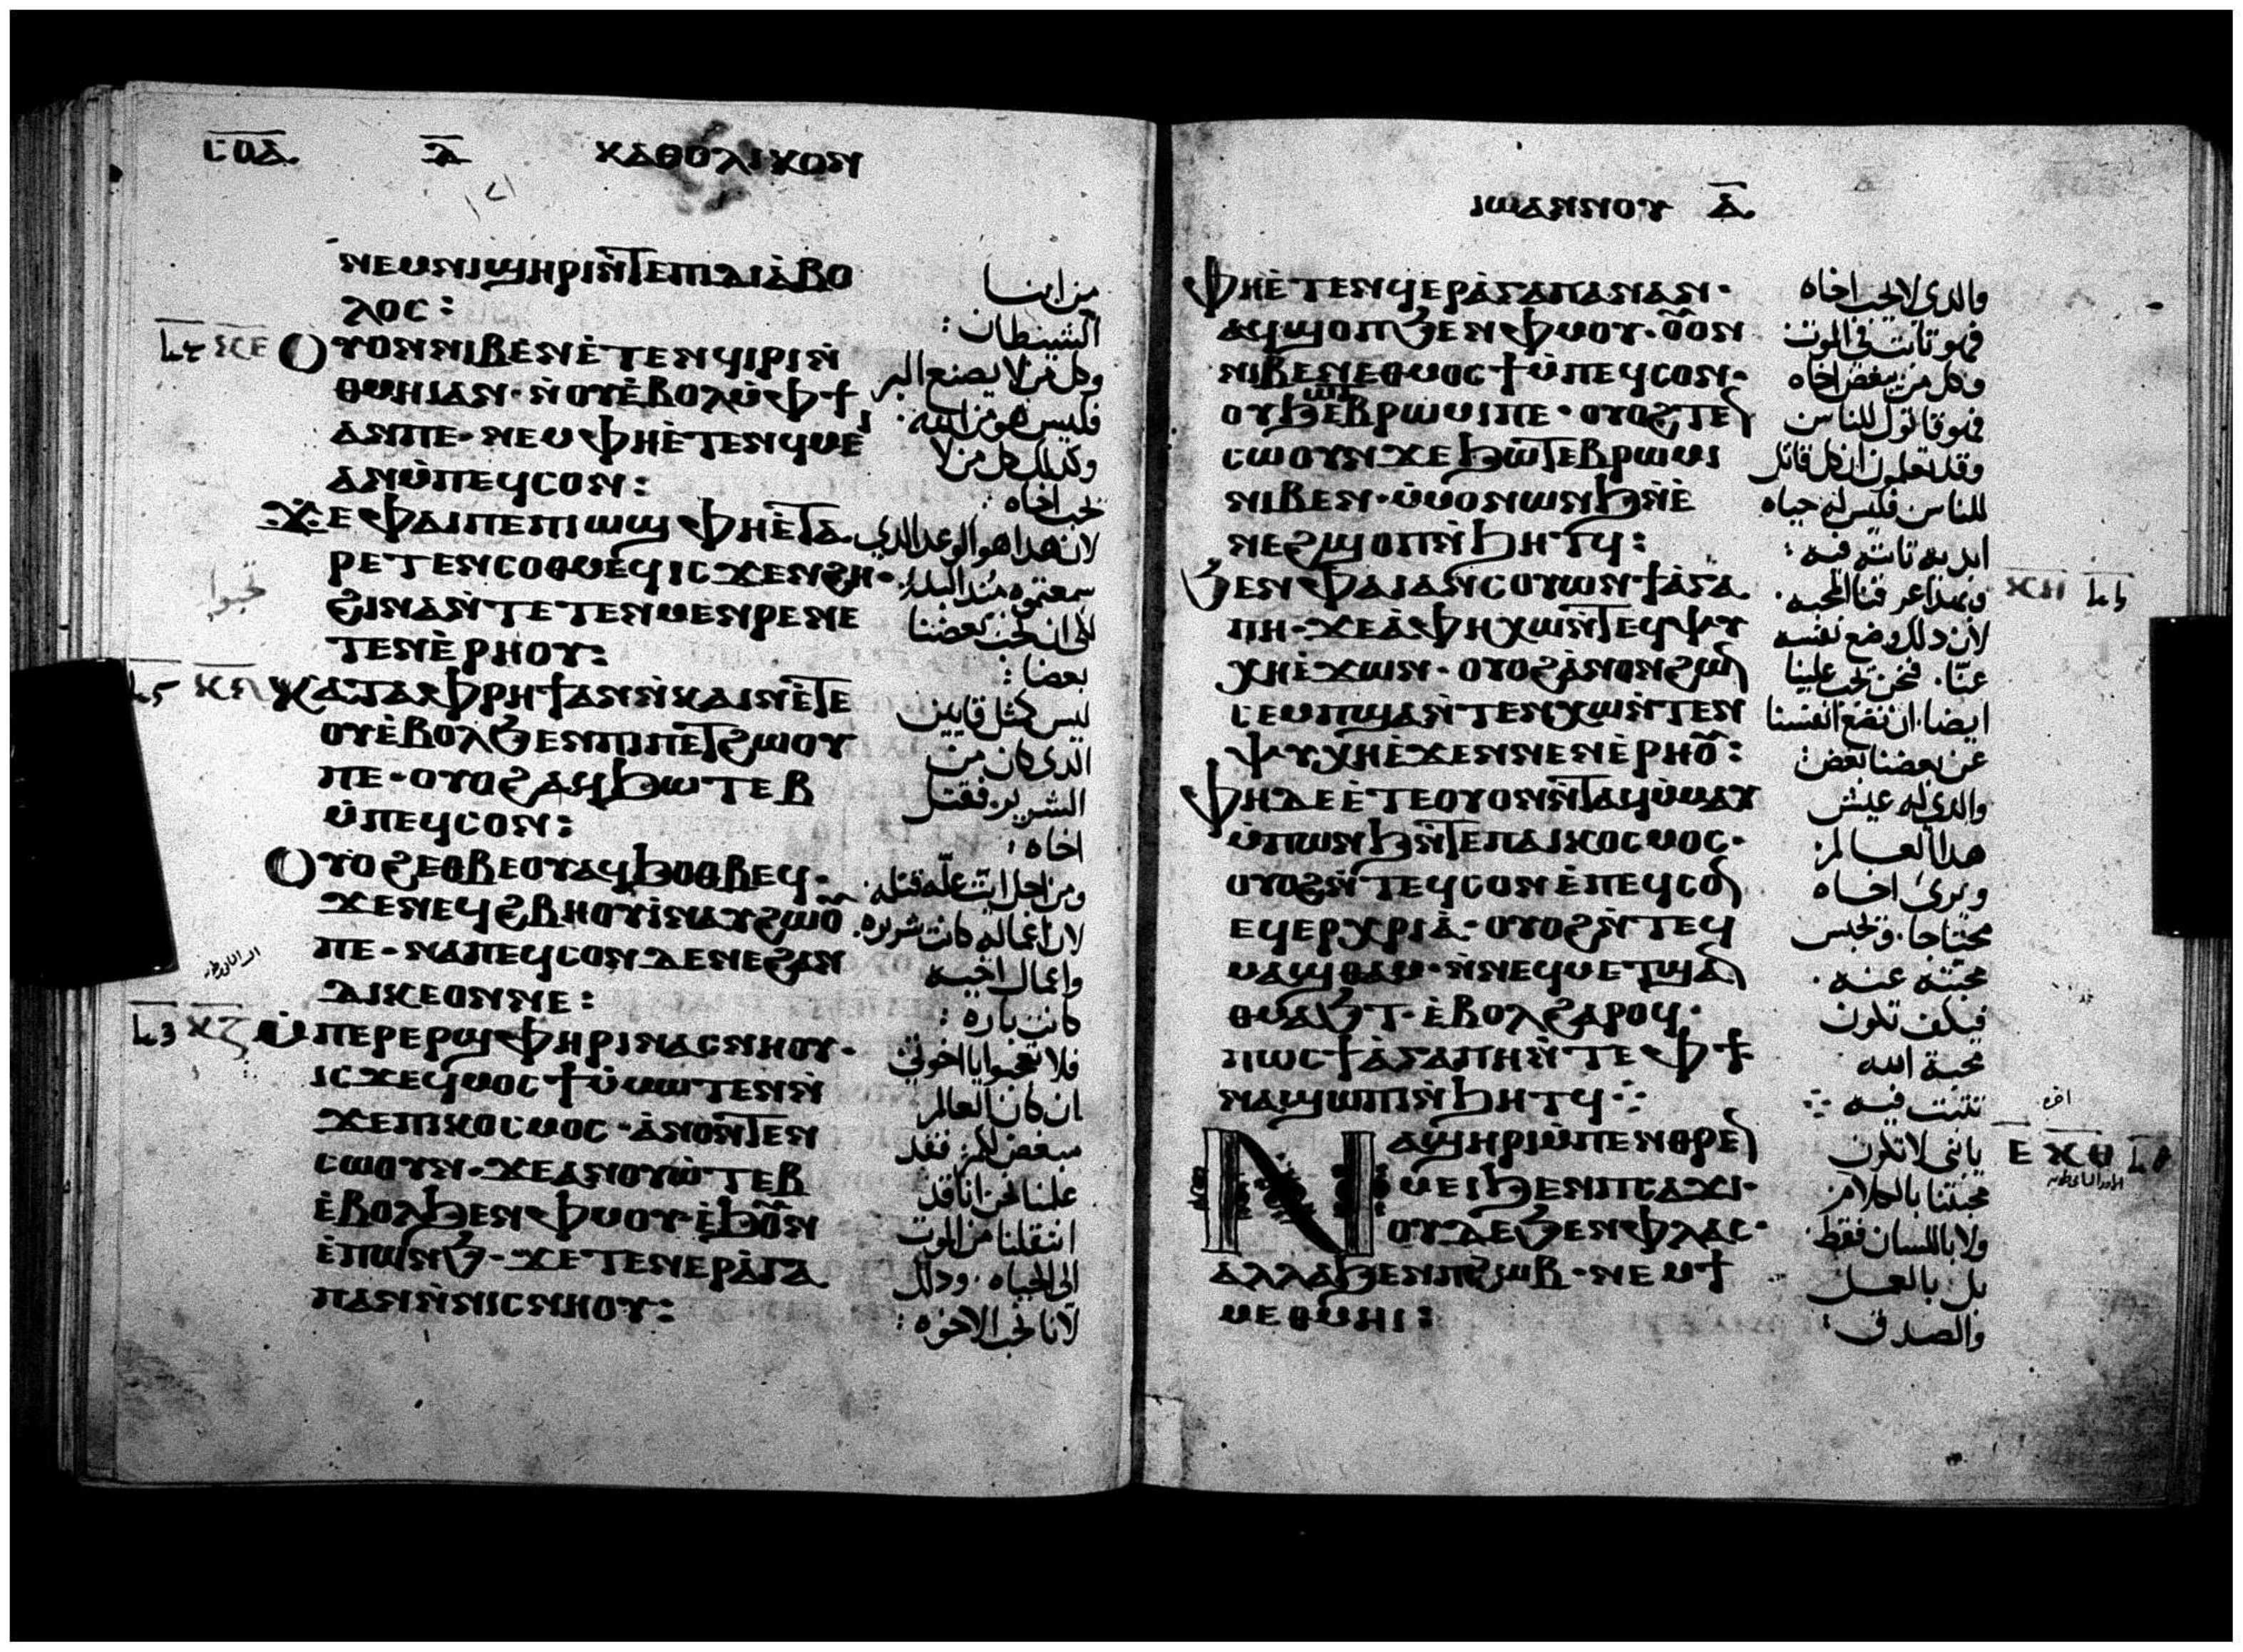 ⲥⲟⲇ. ⲁ̅ ⲕⲁⲑⲟⲗⲓⲕⲟⲛ
ⲛⲉⲙⲛⲓϣⲏⲣⲓⲛ̀ⲧⲉⲡⲇⲓⲁ̀ⲃⲟ
ⲗⲟⲥ:
ⲟⲩⲟⲛⲛⲓⲃⲉⲛⲉ̀ⲧⲉⲛϥⲓⲣⲓⲛ̀
ⲑⲙⲏⲓⲁⲛ· ⲛ̀ⲟⲩⲉ̀ⲃⲟⲗⲙ̀ⲫϯ
ⲁⲛⲡⲉ· ⲛⲉⲙⲫⲏⲉ̀ⲧⲉⲛϥⲙⲉⲓ
ⲁⲛⲙ̀ⲡⲉϥⲥⲟⲛ:
ϫⲉⲫⲁⲓⲡⲉⲡⲓⲱϣⲫⲏⲉ̀ⲧⲁ
ⲣⲉⲧⲉⲛⲥⲟⲑⲙⲉϥⲓⲥϫⲉⲛϩⲏ·
ϩⲓⲛⲁⲛ̀ⲧⲉⲧⲉⲛⲙⲉⲛⲣⲉⲛⲉ
ⲧⲉⲛⲉ̀ⲣⲏⲟⲩ:
ⲕⲁⲧⲁⲫⲣⲏϯⲁⲛⲛ̀ⲕⲁⲓⲛⲉ̀ⲧⲉ
ⲟⲩⲉ̀ⲃⲟⲗϧⲉⲛⲡⲓⲡⲉⲧϩⲱⲟⲩ
ⲡⲉ· ⲟⲩⲟϩⲁϥϧⲱⲧⲉⲃ
ⲙ̀ⲡⲉϥⲥⲟⲛ:
ⲟⲩⲟϩⲉⲑⲃⲉⲟⲩⲁϥϧⲟⲑⲃⲉϥ·
ϫⲉⲛⲉϥϩⲃⲏⲟⲩⲓ̀ⲛⲁⲩϩⲱⲟ̅
ⲡⲉ· ⲛⲁⲡⲉϥⲥⲟⲛⲇⲉⲛⲉϩⲁⲛ
ⲇⲓⲕⲉⲟⲛⲛⲉ:
ⲙ̀ⲡⲉⲣⲉⲣϣⲫⲏⲣⲓⲛⲁⲥⲛⲏⲟⲩ·
ⲓⲥϫⲉϥⲙⲟⲥϯⲙ̀ⲙⲱⲧⲉⲛⲛ̀
ϫⲉⲡⲓⲕⲟⲥⲙⲟⲥ· ⲁ̀ⲛⲟⲛⲧⲉⲛ
ⲥⲱⲟⲩⲛ· ϫⲉⲁⲛⲟⲩⲱ̀ⲧⲉⲃ
ⲉ̀ⲃⲟⲗϧⲉⲛⲫⲙⲟⲩ ⲉ̀ϧⲟ̅ⲛ
ⲉ̀ⲡⲱⲛϧ· ϫⲉⲧⲉⲛⲉⲣⲁ̀ⲅⲁ
ⲡⲁⲛⲛ̀ⲛⲓⲥⲛⲏⲟⲩ:
من ابنا
الشيطان:
وكل من لا يصنع البر
فليس هو من الله.
وكذلك كل من لا
يحب اخاه:
لان هذا هو الوعد الذي
سمعتموه منذ البدء.
لكي نحب بعضنا
بعضا:
ليس كمثل قايين
الذي كان من
الشرير. فقتل
اخاه:
ومن اجل ايت علّه قتله.
لان اعماله كانت شريره.
واعمال اخيه
كانت باره:
فلا تعجبوا يا اخوتي
ان كان العالم
يبغضكم. فقد
علمنا نحن انا قد
انتقلنا من الموت
الى الحياه. وذلك
لانا نحب الاخوه:
تحبوا
ⲕⲉ
ⲕⲋ
ⲕⲍ
ⲓⲱⲁⲛⲛⲟⲩ ⲁ̅.
ⲫⲏⲉ̀ⲧⲉⲛϥⲉⲣⲁ̀ⲅⲁⲡⲁⲛⲁⲛ·
ⲁϥϣⲟⲡϧⲉⲛⲫⲙⲟⲩ· ⲟ̅ⲟⲛ
ⲛⲓⲃⲉⲛⲉⲑⲙⲟⲥϯⲙ̀ⲡⲉϥⲥⲟⲛ·
ⲟⲩϧⲁⲧⲉⲃⲣⲱⲙⲓⲡⲉ· ⲟⲩⲟϩⲧⲉⲛ
ⲥⲱⲟⲩⲛϫⲉϧⲱⲧⲉⲃⲣⲱⲙⲓ
ⲛⲓⲃⲉⲛ· ⲙ̀ⲙⲟⲛⲱⲛϧⲛ̀ⲉ̀
ⲛⲉϩϣⲟⲡⲛ̀ϧⲏⲧϥ:
ϧⲉⲛⲫⲁⲓⲁⲛⲥⲟⲩⲱⲛϯⲁ̀ⲅⲁ
ⲡⲏ· ϫⲉⲁ̀ⲫⲏⲭⲱⲛ̀ⲧⲉϥⲯⲩ
ⲭⲏⲉ̀ϫⲱⲛ· ⲟⲩⲟϩⲁ̀ⲛⲟⲛϩⲱⲛ
ⲥⲉⲙⲡϣⲁⲛ̀ⲧⲉⲛⲭⲱⲛ̀ⲧⲉⲛ
ⲯⲩⲭⲏⲉ̀ϫⲉⲛⲛⲉⲛⲉ̀ⲣⲏⲟ̅:
ⲫⲏⲇⲉⲉ̀ⲧⲉⲟⲩⲟⲛⲛ̀ⲧⲁϥⲙ̀ⲙⲁⲩ
ⲙ̀ⲡⲱⲛϧⲛ̀ⲧⲉⲡⲁⲓⲕⲟⲥⲙⲟⲥ·
ⲟⲩⲟϩⲛ̀ⲧⲉϥⲥⲟⲛⲉ̀ⲡⲉϥⲥⲟⲛ
ⲉϥⲉⲣⲭⲣⲓⲁ̀· ⲟⲩⲟϩⲛ̀ⲧⲉϥ
ⲙⲁϣⲑⲁⲙ· ⲛ̀ⲛⲉϥⲙⲉⲧϣⲁⲛ
ⲑⲙⲁϧⲧ· ⲉ̀ⲃⲟⲗϩⲁⲣⲟϥ·
ⲡⲱⲥϯⲁ̀ⲅⲁⲡⲏⲛ̀ⲧⲉⲫϯ
ⲛⲁϣⲱⲡⲓⲛ̀ϧⲏⲧϥ
ⲛⲁϣⲏⲣⲓⲙ̀ⲡⲉⲛⲑⲣⲉⲛ
ⲙⲉⲓϧⲉⲛⲡⲥⲁϫⲓ·
ⲟⲩⲇⲉϧⲉⲛⲫⲗⲁⲥ·
ⲁⲗⲗⲁϧⲉⲛⲡϩⲱⲃ· ⲛⲉⲙϯ
ⲙⲉⲑⲙⲏⲓ:
والذي لا يحب اخاه
فهو ثابت في الموت
وكل من يبغض اخاه
فهو قاتول للناس
وقد تعلمون ان كل قاتل
للناس فليس له حياه
ابديه ثابته فيه:
وبهذا عرفنا المحبه.
لان ذلك وضع نفسه
عنّا. فنحن يجب علينا
ايضا ان نضع انفسنا
عن بعضنا بعض:
والذي له عيش
هذا العالم:
ويرى اخاه
محتاجا. ويحبس
محبته عنه.
فكيف تكون
محبة الله
تثبت فيه
يابني لا تكون
محبتنا بالكلام
ولا باللسان فقط.
بل بالعمل
والصدق:
ⲕⲏ
ⲉ ⲕⲑ